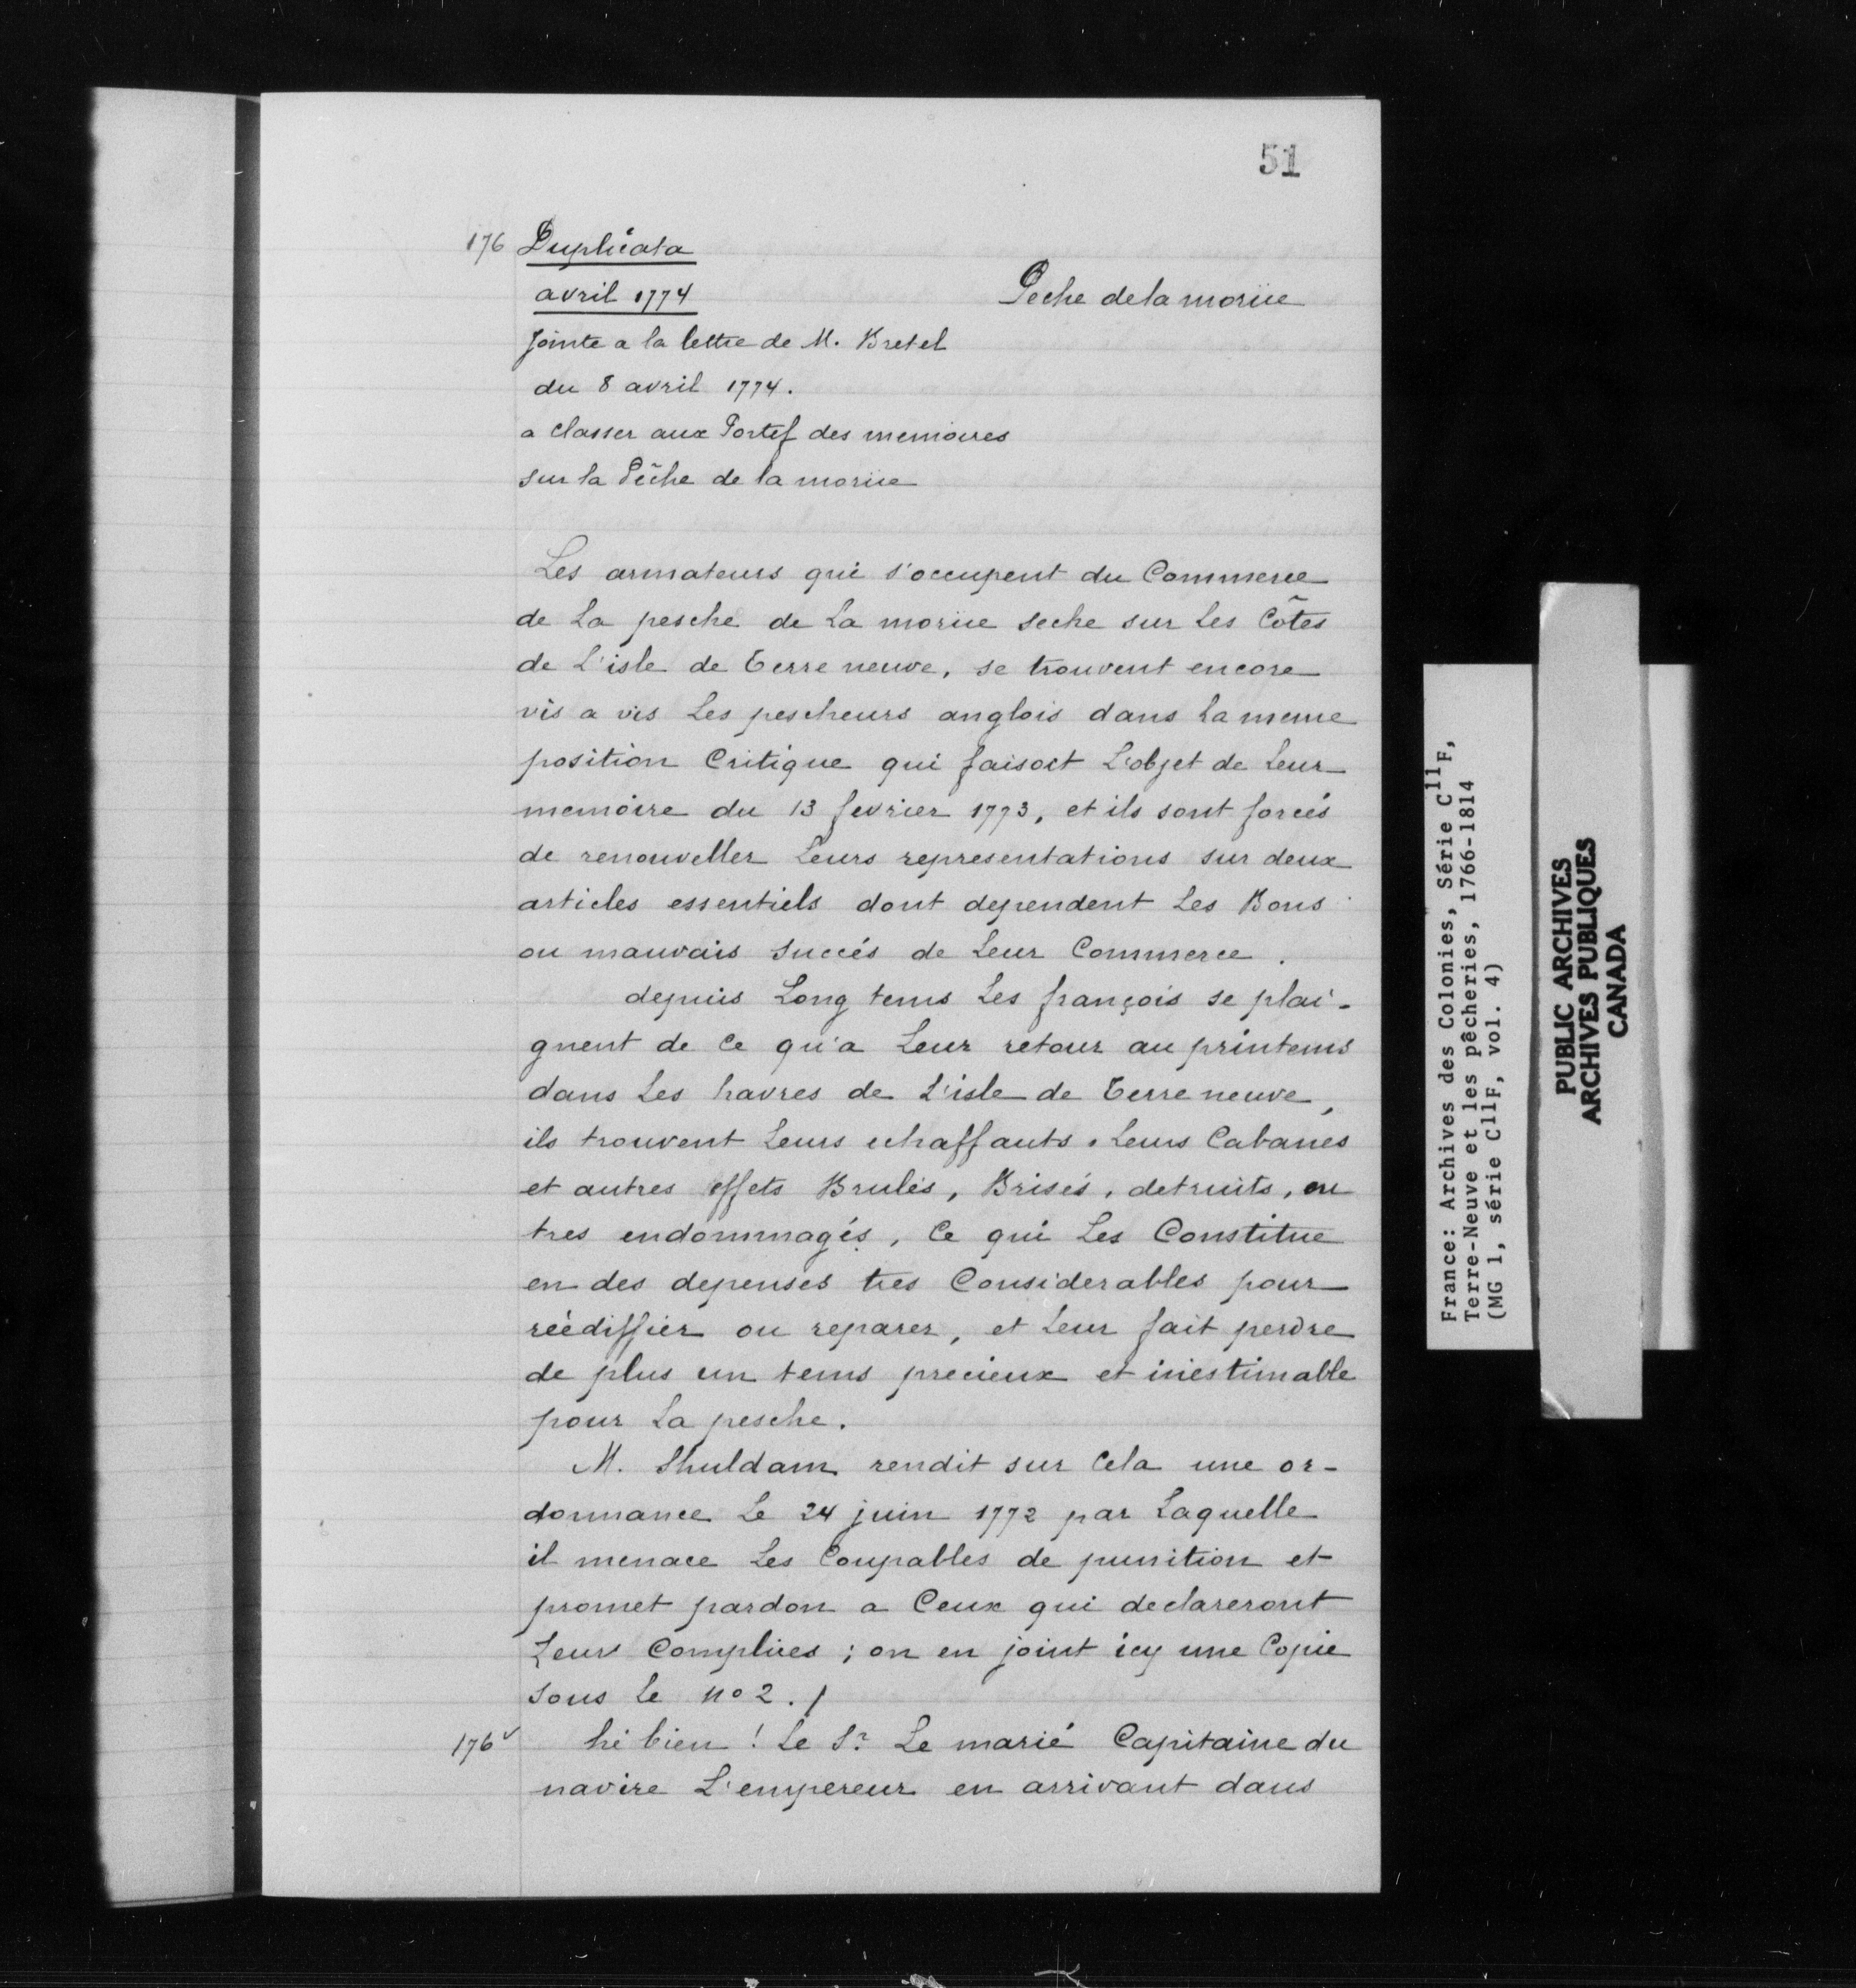 51
176 Duplicata
avril 1774
Peche de la moruë
Jointe a la lettre de M. Bretel
du 8 avril 1774.
a classer aux Portef des memoires
sur la Pêche de la moruë
Les armateurs qui s'occupent du Commerce
de La pesche de La moruë seche sur Les Côtes
de L'isle de Terre neuve, se trouvent encore
vis a vis Les pescheurs anglois dans La meme
position Critique qui faisoit L'objet de Leur
memoire du 13 fevrier 1773, et ils sont forcés
de renouveller Leurs representations sur deux
articles essentiels dont dependent Les Bons
ou mauvais Succés de Leur Commerce.
depuis Long tems Les françois se plai-
gnent de Ce qu'a Leur retour au printems
dans Les havres de L'isle de Terre neuve,
ils trouvent Leurs echaffauts, Leurs Cabanes
et autres effets Brulés, Brisés, detruits, ou
tres endommagés, Ce qui Les Constitue
en des depenses tres Considerables pour
réédiffier ou reparer, et Leur fait perdre
de plus un tems precieux et inestimable
pour La pesche.
M. Shuldam rendit sur Cela une or-
donnance Le 24 juin 1772 par Laquelle
il menace Les Coupables de punition et
promet pardon a Ceux qui declareront
Leurs Complices ; on en joint icy une Copie
sous Le no 2. /
176v hé bien ! Le Sr Le marié Capitaine du
navire L'empereur en arrivant dans
France: Archives des Colonies, Série C11F,
Terre-Neuve et les pêcheries, 1766-1814
(MG 1, série C11F, vol. 4)
PUBLIC ARCHIVES
ARCHIVES PUBLIQUES
CANADA